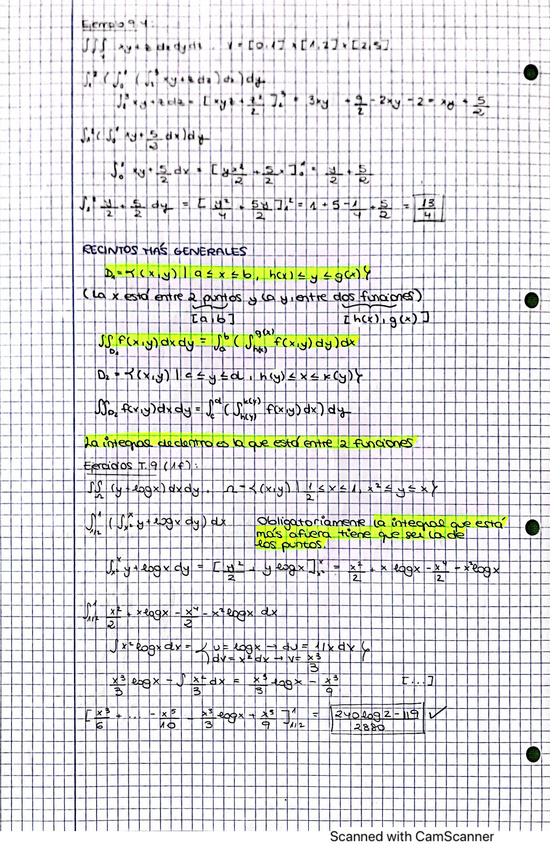 Ejemplo 9.4:
∫∫∫ᵥ xy+z dxdydz. V=[0,1]×[1,2]×[2,3]
∫₁²(∫₀¹(∫₂³ xy+z dz)dx)dy
∫₂³ xy+z dz = [xyz + z²/2]₂³ = 3xy + 9/2 - 2xy - 2 = xy + 5/2
∫₁²(∫₀¹ xy + 5/2 dx)dy
∫₀¹ xy + 5/2 dx = [yx²/2 + 5/2 x]₀¹ = y/2 + 5/2
∫₁² y/2 + 5/2 dy = [y²/4 + 5y/2]₁² = 1 + 5 - 1/4 + 5/2 = 13/4
RECINTOS MÁS GENERALES
D₁ = {(x,y) | a ≤ x ≤ b, h(x) ≤ y ≤ g(x)}
(La x está entre 2 puntos y la y, entre dos funciones)
[a,b] [h(x), g(x)]
∫∫_D₁ f(x,y)dxdy = ∫ₐᵇ(∫_h(x)^g(x) f(x,y)dy)dx
D₂ = {(x,y) | c ≤ y ≤ d, h(y) ≤ x ≤ k(y)}
∫∫_D₂ f(x,y)dxdy = ∫_c^d(∫_h(y)^k(y) f(x,y)dx)dy
La integral de dentro es la que está entre 2 funciones
Ejercicios T.9 (1f):
∫∫_Ω (y+logx)dxdy, Ω = {(x,y) | 1/2 ≤ x ≤ 1, x² ≤ y ≤ x}
∫_1/2^1(∫_x²^x y+logx dy)dx Obligatoriamente la integral que está
más afuera tiene que ser la de
los puntos.
∫_x²^x y+logx dy = [y²/2 + y logx]_x²^x = x²/2 + x logx - x⁴/2 - x²logx
∫_1/2^1 x²/2 + xlogx - x⁴/2 - x²logx dx
∫x²logx dx = {u = logx → du = 1/x dx
dv = x²dx → v = x³/3}
x³/3 logx - ∫x²/3 dx = x³/3 logx - x³/9 [...]
[x³/6 + ... - x⁵/10 - x³/3 logx + x³/9]_1/2^1 = 240log2-119/2880 ✓
Scanned with CamScanner